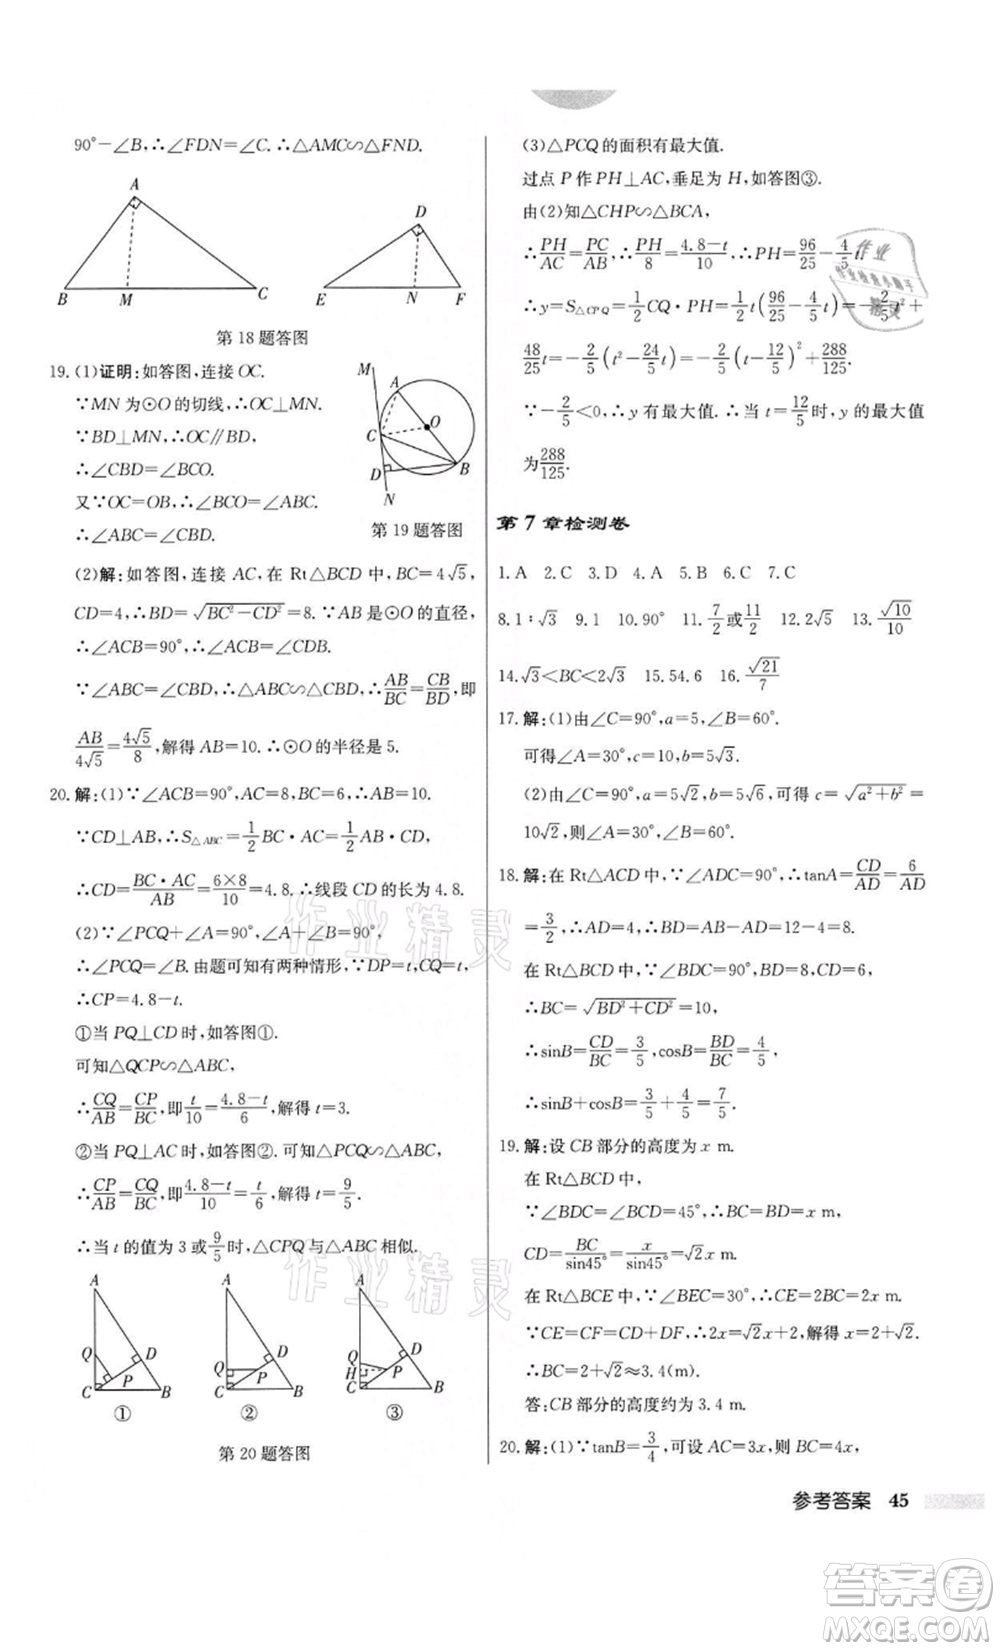 90°－∠B,∴∠FDN＝∠C.∴△AMC∽△FND.
A
B
M
C
D
E
N
F
第18题答图
19.(1)证明:如答图,连接OC.
∵MN为⊙O的切线,∴OC⊥MN.
∵BD⊥MN,∴OC∥BD,
∴∠CBD＝∠BCO.
又∵OC＝OB,∴∠BCO＝∠ABC,
∴∠CBD＝∠ABC.
M
A
O
C
D
B
N
第19题答图
(2)解:如答图,连接AC,在Rt△BCD中,BC＝4√5,
CD＝4,∴BD＝√(BC²－CD²)＝8.∵AB是⊙O的直径,
∴∠ACB＝90°,∴∠ACB＝∠CDB＝90°.
∵∠ABC＝∠CBD,∴△ABC∽△CBD,∴AB/BC＝CB/BD,即
AB/4√5＝4√5/8,解得AB＝10.∴⊙O的半径是5.
20.解:(1)∵∠ACB＝90°,AC＝8,BC＝6,∴AB＝10.
∵CD⊥AB,∴S△ABC＝1/2 BC·AC＝1/2 AB·CD,
∴CD＝BC·AC/AB＝6×8/10＝4.8.∴线段CD的长为4.8.
(2)∵∠PCQ＋∠A＝90°,∠A＋∠B＝90°,
∴∠PCQ＝∠B.由题可知有两种情形,∵DP＝t,CQ＝t,
∴CP＝4.8－t.
①当PQ⊥CD时,如答图①.
可知△QCP∽△ABC,
∴CQ/AB＝CP/BC,即t/10＝4.8－t/6,解得t＝3.
②当PQ⊥AC时,如答图②.可知△PCQ∽△ABC,
∴CP/AB＝CQ/BC,即4.8－t/10＝t/6,解得t＝9/5.
∴当t的值为3或9/5时,△CPQ与△ABC相似.
A
Q
D
P
C
B
①
A
Q
D
P
C
B
②
A
Q
H
D
P
C
B
③
第20题答图
(3)△PCQ的面积有最大值.
过点P作PH⊥AC,垂足为H,如答图③.
由(2)知△CHP∽△BCA,
∴PH/AC＝PC/AB,∴PH/8＝4.8－t/10,∴PH＝96/25－4/5 t
∴y＝S△CPQ＝1/2 CQ·PH＝1/2 t(96/25－4/5 t)＝－2/5 t²＋
48/25 t＝－2/5(t²－24/5 t)＝－2/5(t－12/5)²＋288/125.
∵－2/5＜0,∴y有最大值.∴当t＝12/5时,y的最大值
为288/125.
第7章检测卷
1.A 2.C 3.D 4.A 5.B 6.C 7.C
8.1∶√3 9.1 10.90° 11.7/2或11/2 12.2√5 13.√10/10
14.√3＜BC＜2√3 15.54.6 16.√21/7
17.解:(1)由∠C＝90°,a＝5,∠B＝60°.
可得∠A＝30°,c＝10,b＝5√3.
(2)由∠C＝90°,a＝5√2,b＝5√6,可得c＝√(a²＋b²)＝
10√2,则∠A＝30°,∠B＝60°.
18.解:在Rt△ACD中,∵∠ADC＝90°,∴tanA＝CD/AD＝6/AD
＝3/2,∴AD＝4,∴BD＝AB－AD＝12－4＝8.
在Rt△BCD中,∵∠BDC＝90°,BD＝8,CD＝6,
∴BC＝√(BD²＋CD²)＝10,
∴sinB＝CD/BC＝3/5,cosB＝BD/BC＝4/5,
∴sinB＋cosB＝3/5＋4/5＝7/5.
19.解:设CB部分的高度为x m.
在Rt△BCD中,
∵∠BDC＝∠BCD＝45°,∴BC＝BD＝x m,
CD＝BC/sin45°＝x/sin45°＝√2x m.
在Rt△BCE中,∵∠BEC＝30°,∴CE＝2BC＝2x m.
∵CE＝CF＝CD＋DF,∴2x＝√2x＋2,解得x＝2＋√2.
∴BC＝2＋√2≈3.4(m).
答:CB部分的高度约为3.4 m.
20.解:(1)∵tanB＝3/4,可设AC＝3x,则BC＝4x,
参考答案 45
作业精灵
作业精灵
答案卷
MXQE.COM